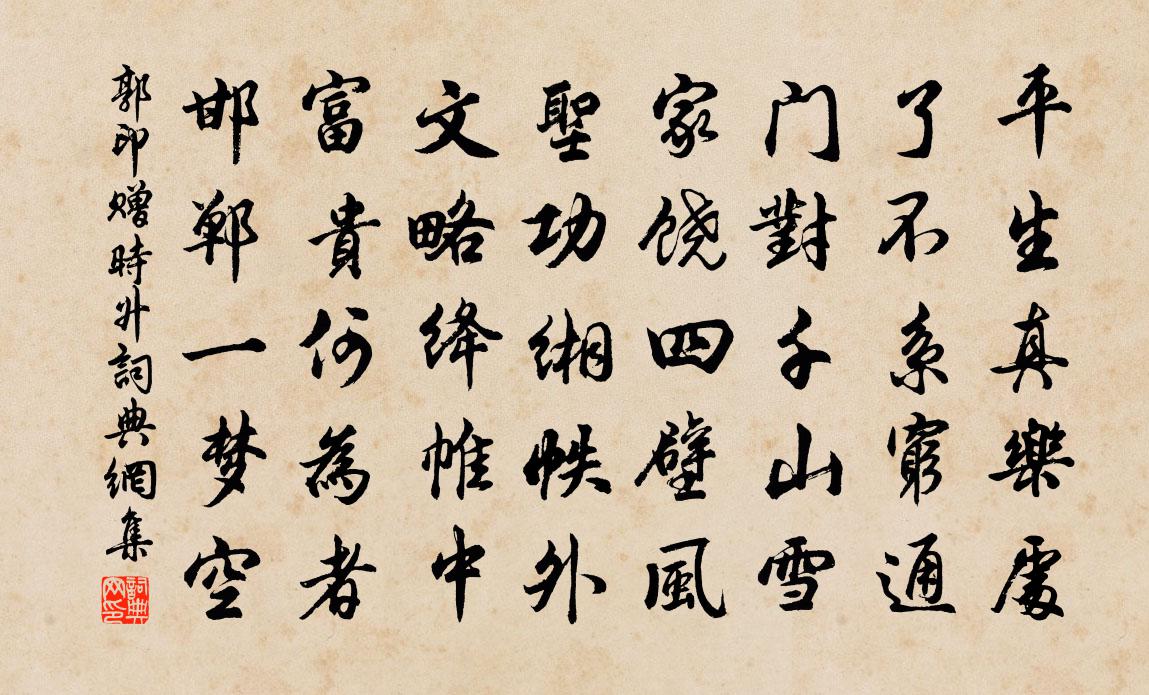 平生真樂處
了不系窮通
门對千山雪
家饶四壁風
聖功缃帙外
文略绛帷中
富貴何為者
邯鄲一梦空
郭印赠時升詞典網集
詞典网印